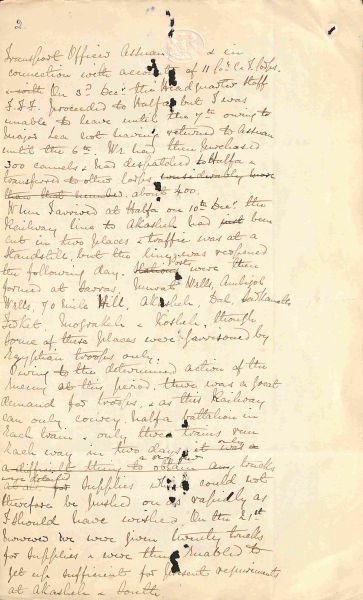 2.
Transport Officer Assuan & in
connection with accounts of 11 Co. C. & T. Corps.
On 3rd Decr. the Headquarter Staff
F.F.F. proceeded to Halfa but I was
unable to leave until the 7th owing to
Major Lea not having returned to Assuan
until the 6th. We had then purchased
300 camels, had despatched to Halfa &
transferred to other Corps considerably more
than that number about 400.
When I arrived at Halfa on 10th Decr. the
Railway line to Akasheh had just been
cut in two places & traffic was at a
standstill, but the line was reopened
the following day. Stations Posts were then
formed at Sarras, Murrat Wells, Ambigol
Wells, 70 Mile Hill, Akasheh, Dal,
Firket, Mograkeh & Kosheh, though
some of these places were garrisoned by
Egyptian troops only.
Owing to the determined action of the
enemy at this period, there was a great
demand for troops, & as this Railway
can only convey half a battalion in
each train & only three trains run
each way in two days, it was only
a difficult thing to obtain any trucks
at all for supplies which could not
therefore be pushed on as rapidly as
I should have wished. On the 21st
however we were given twenty trucks
for supplies & were then enabled to
get up sufficient for present requirements
at Akasheh & South